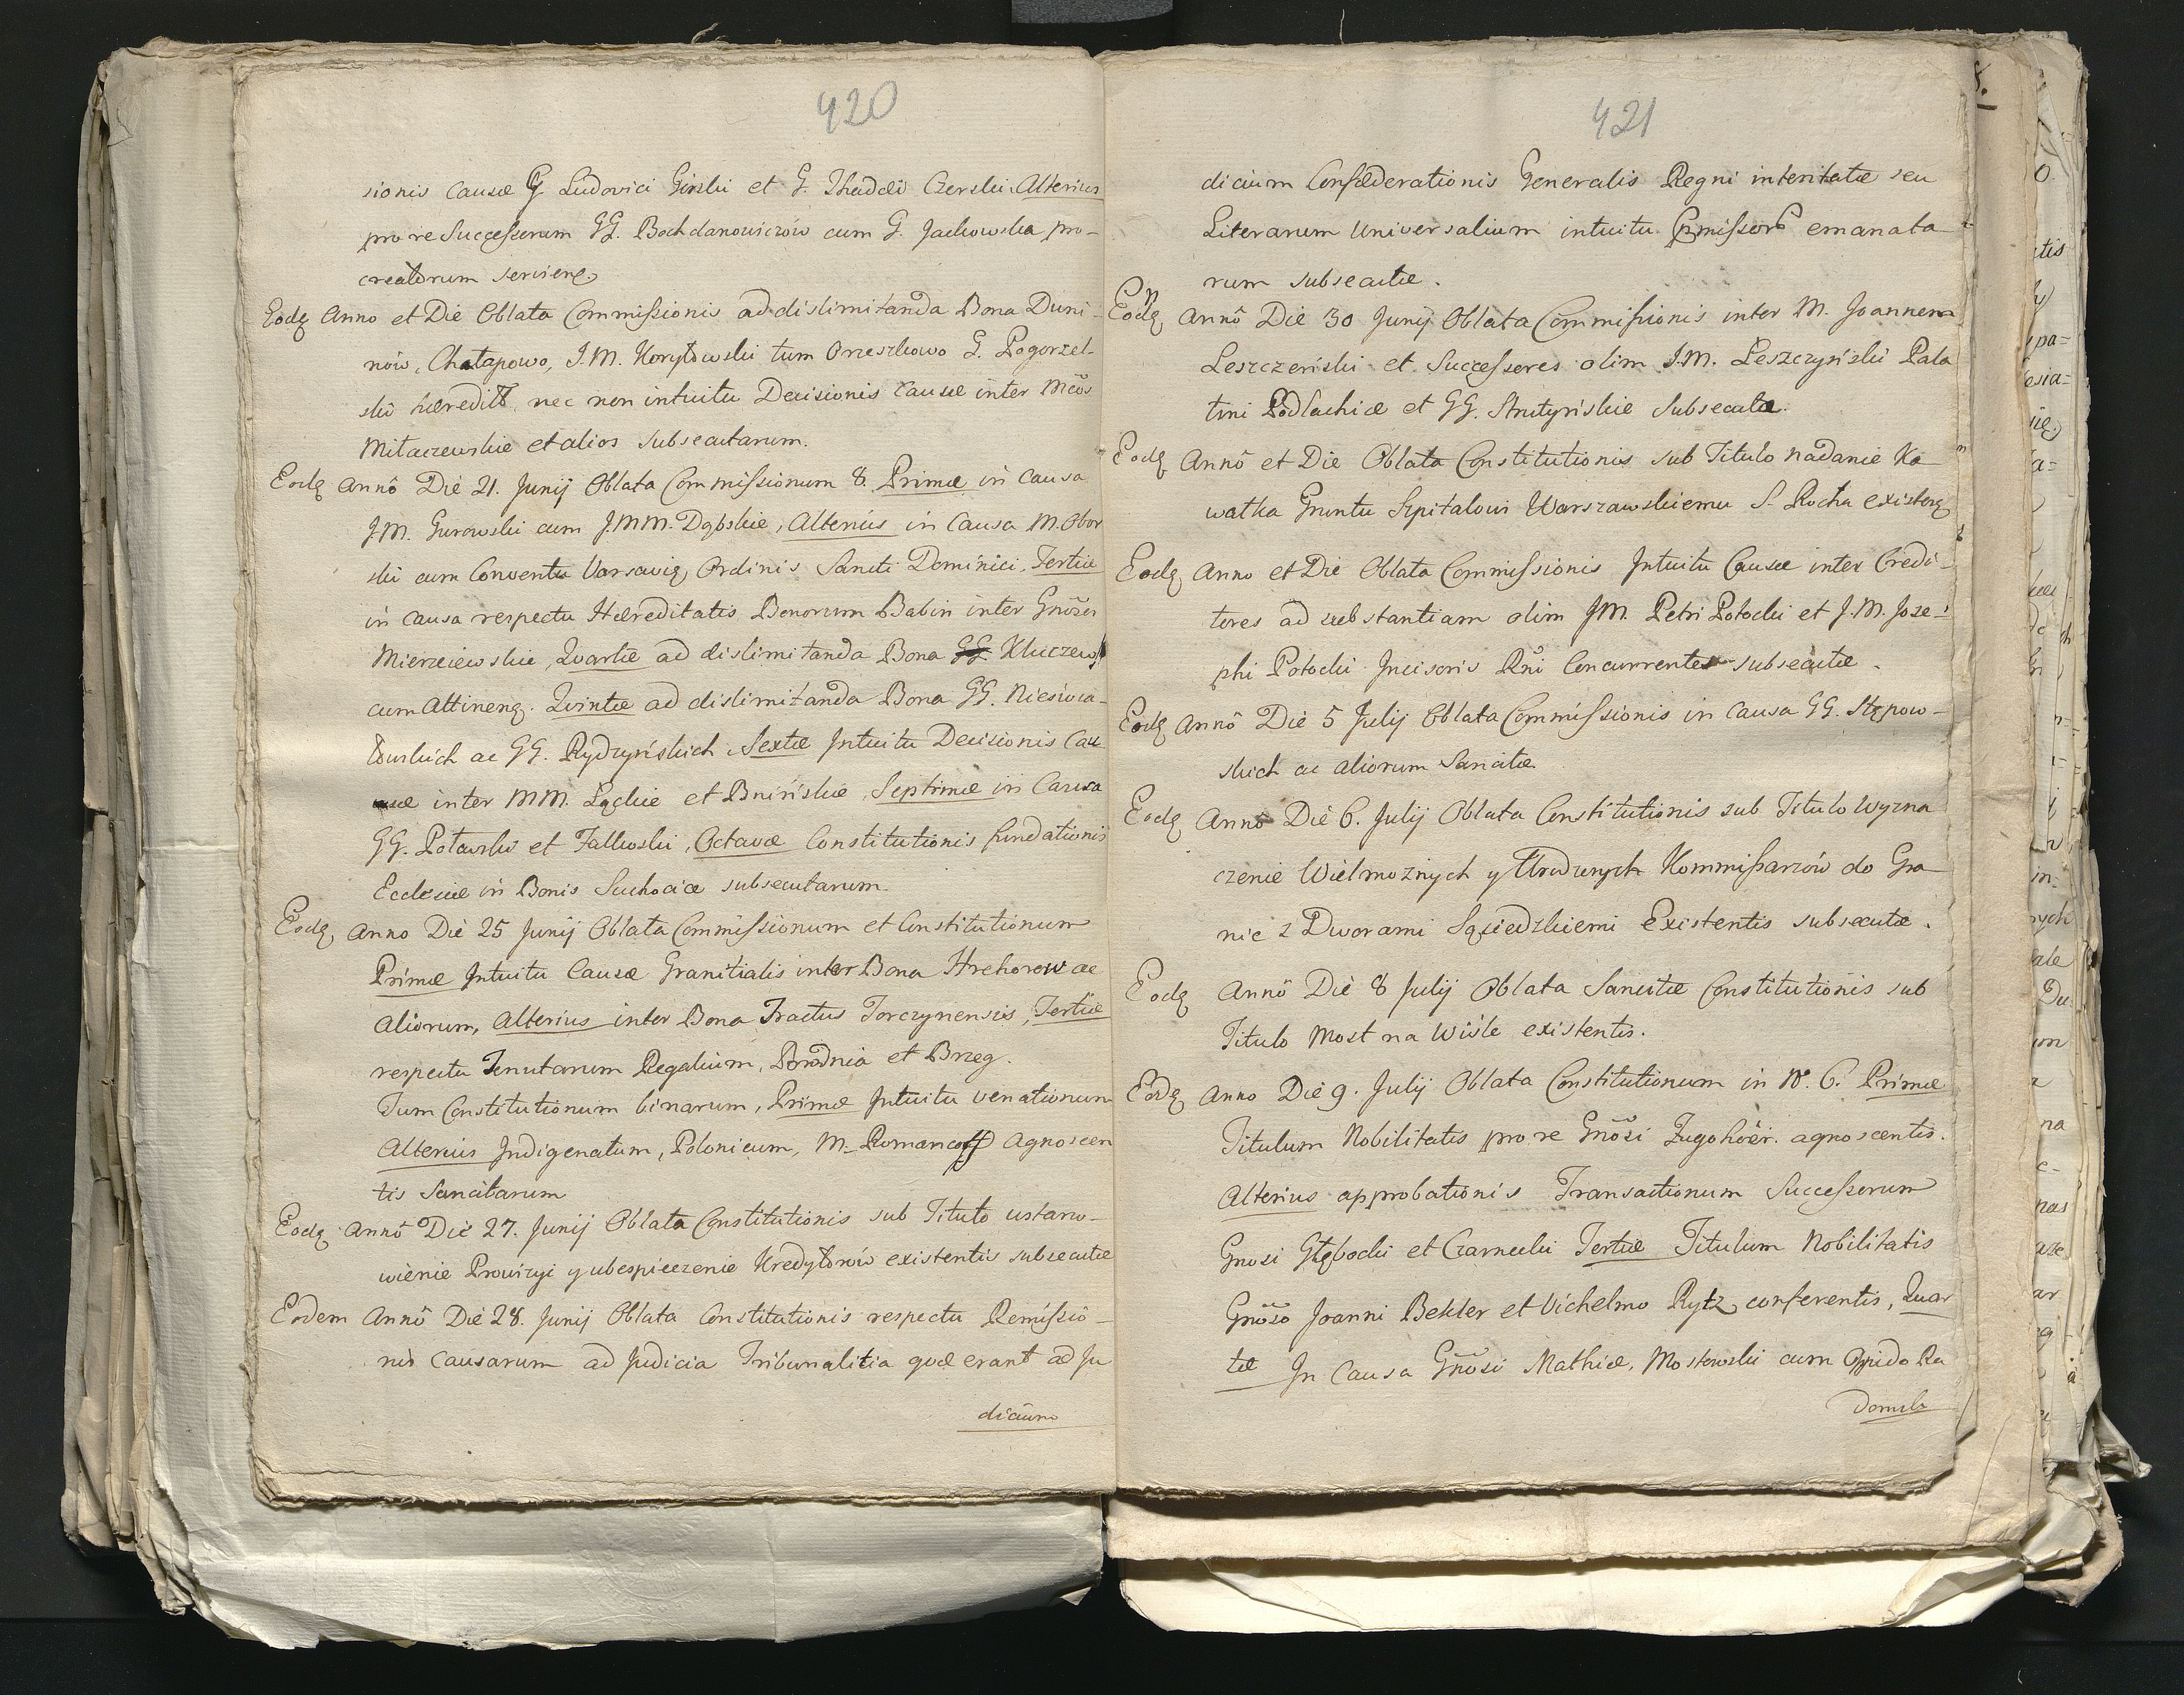 420
sionis causæ G. Ludovici Girski et G. Thadæi Czerski. Alterius
pro re Successorum GG. Bochdanowiczów cum G. Jackowska pro-
creatorum servieng.
Eodg Anno et Die Oblata Commißionis ad dislimitanda Bona Duni-
nów, Chałapowo, J.M. Korytowski tum Orzeszkowo G. Pogorzel-
ski hæredit, nec non intuitu Decisionis causæ inter Mcos
Mitaczewskie et alios subsecutarum.
Eodg Annô Die 21. Junij Oblata Commißionum 8. Primæ in causa
J.M. Gurowski cum J.M.M. Dąbskie, Alterius in Causa M. Obor
ski cum Conventu Varsavię Ordinis Sancti Dominici, Tertiæ
in causa respectu Hæreditatis Bonorum Babin inter Gnosos
Mierzeiewskie, Quartæ ad dislimitanda Bona GG. Kluczewo
cum Attineng. Quintæ ad dislimitanda Bona GG. Nieświa-
towskich ac GG. Rydzyńskich. Sextæ Intuitu Decisionis Cau
usæ inter MM. Łąckie et Bnińskie, Septimæ in Causa
GG. Potawski et Falkoski, Octavæ Constitutionis fundationis
Ecclesiæ in Bonis Suchocice subsecutarum.
Eodg Anno Die 25 Junij Oblata Commißionum et Constitutionum
Primæ Intuitu Causæ Granitialis inter Bona Hrehorow ac
Aliorum, Alterius inter Bona Tractus Torczynensis, Tertiæ
respectu Tenutarum Regalium, Brodnia et Brzeg.
Tum Constitutionum binarum, Primæ Intuitu venationum
Alterius Indigenatum, Polonicum, M. Romancoff Agnoscen
tis Sancitarum
Eodg Annô Die 27. Junij Oblata Constitutionis sub Titulo ustano-
wienie Prowizyi y ubespieczenie Kredytorów existentis subsecutæ
Eodem Annô Die 28. Junij Oblata Constitutionis respectu Remißio-
nis causarum ad Judicia Tribunalitia quæ erant ad Ju
dicium
421
dicium Confæderationis Generalis Regni intentatæ seu
Literarum Universalium intuitu emanata
rum subsecutæ.
Eodg Annô Die 30 Junij Oblata Commißionis inter M. Joannem
Leszczeński et Successores olim J.M. Leszczyński Pala
tini Podlachiæ et GG. Strutyńskie Subsecutæ.
Eodg Annô et Die Oblata Constitutionis sub Titulo nadanie Ka
watka Gruntu Szpitalowi Warszawskiemu S. Rocha existeng
Eodg Anno et Die Oblata Commißionis Intuitu Causæ inter Credi-
tores ad substantiam olim JM. Petri Potocki et J.M. Jose-
phi Potocki Incisoris Rñi Concurrentes subsecutæ.
Eodg Annô Die 5 Julij Oblata Commißionis in causa GG. Stępow-
skich ac aliorum Sancitæ.
Eodg Annô Die 6. Julij Oblata Constitutionis sub Titulo Wyzna
czenie Wielmożnych y Urodzonych Kommißarzów do Gra
nic z Dworami Sąsiedzkiemi Existentis subsecutæ.
Eodg Annô Die 8 Julij Oblata Sancitæ Constitutionis sub
Titulo Most na Wiśle existentis.
Eodg Anno Die 9. Julij Oblata Constitutionum in N. 6. Primæ
Titulum Nobilitatis pro re Gnosi Zugohoër. agnoscentis.
Alterius approbationis Transactionum Successorum
Gnosi Głębocki et Czarnecki Tertiæ Titulum Nobilitatis
Gnoso Joanni Bekler et Vichelmo Rytz conferentis, Quar
tæ In Causa Gnosi Mathiæ, Mostowski cum Oppido Ra
domsk